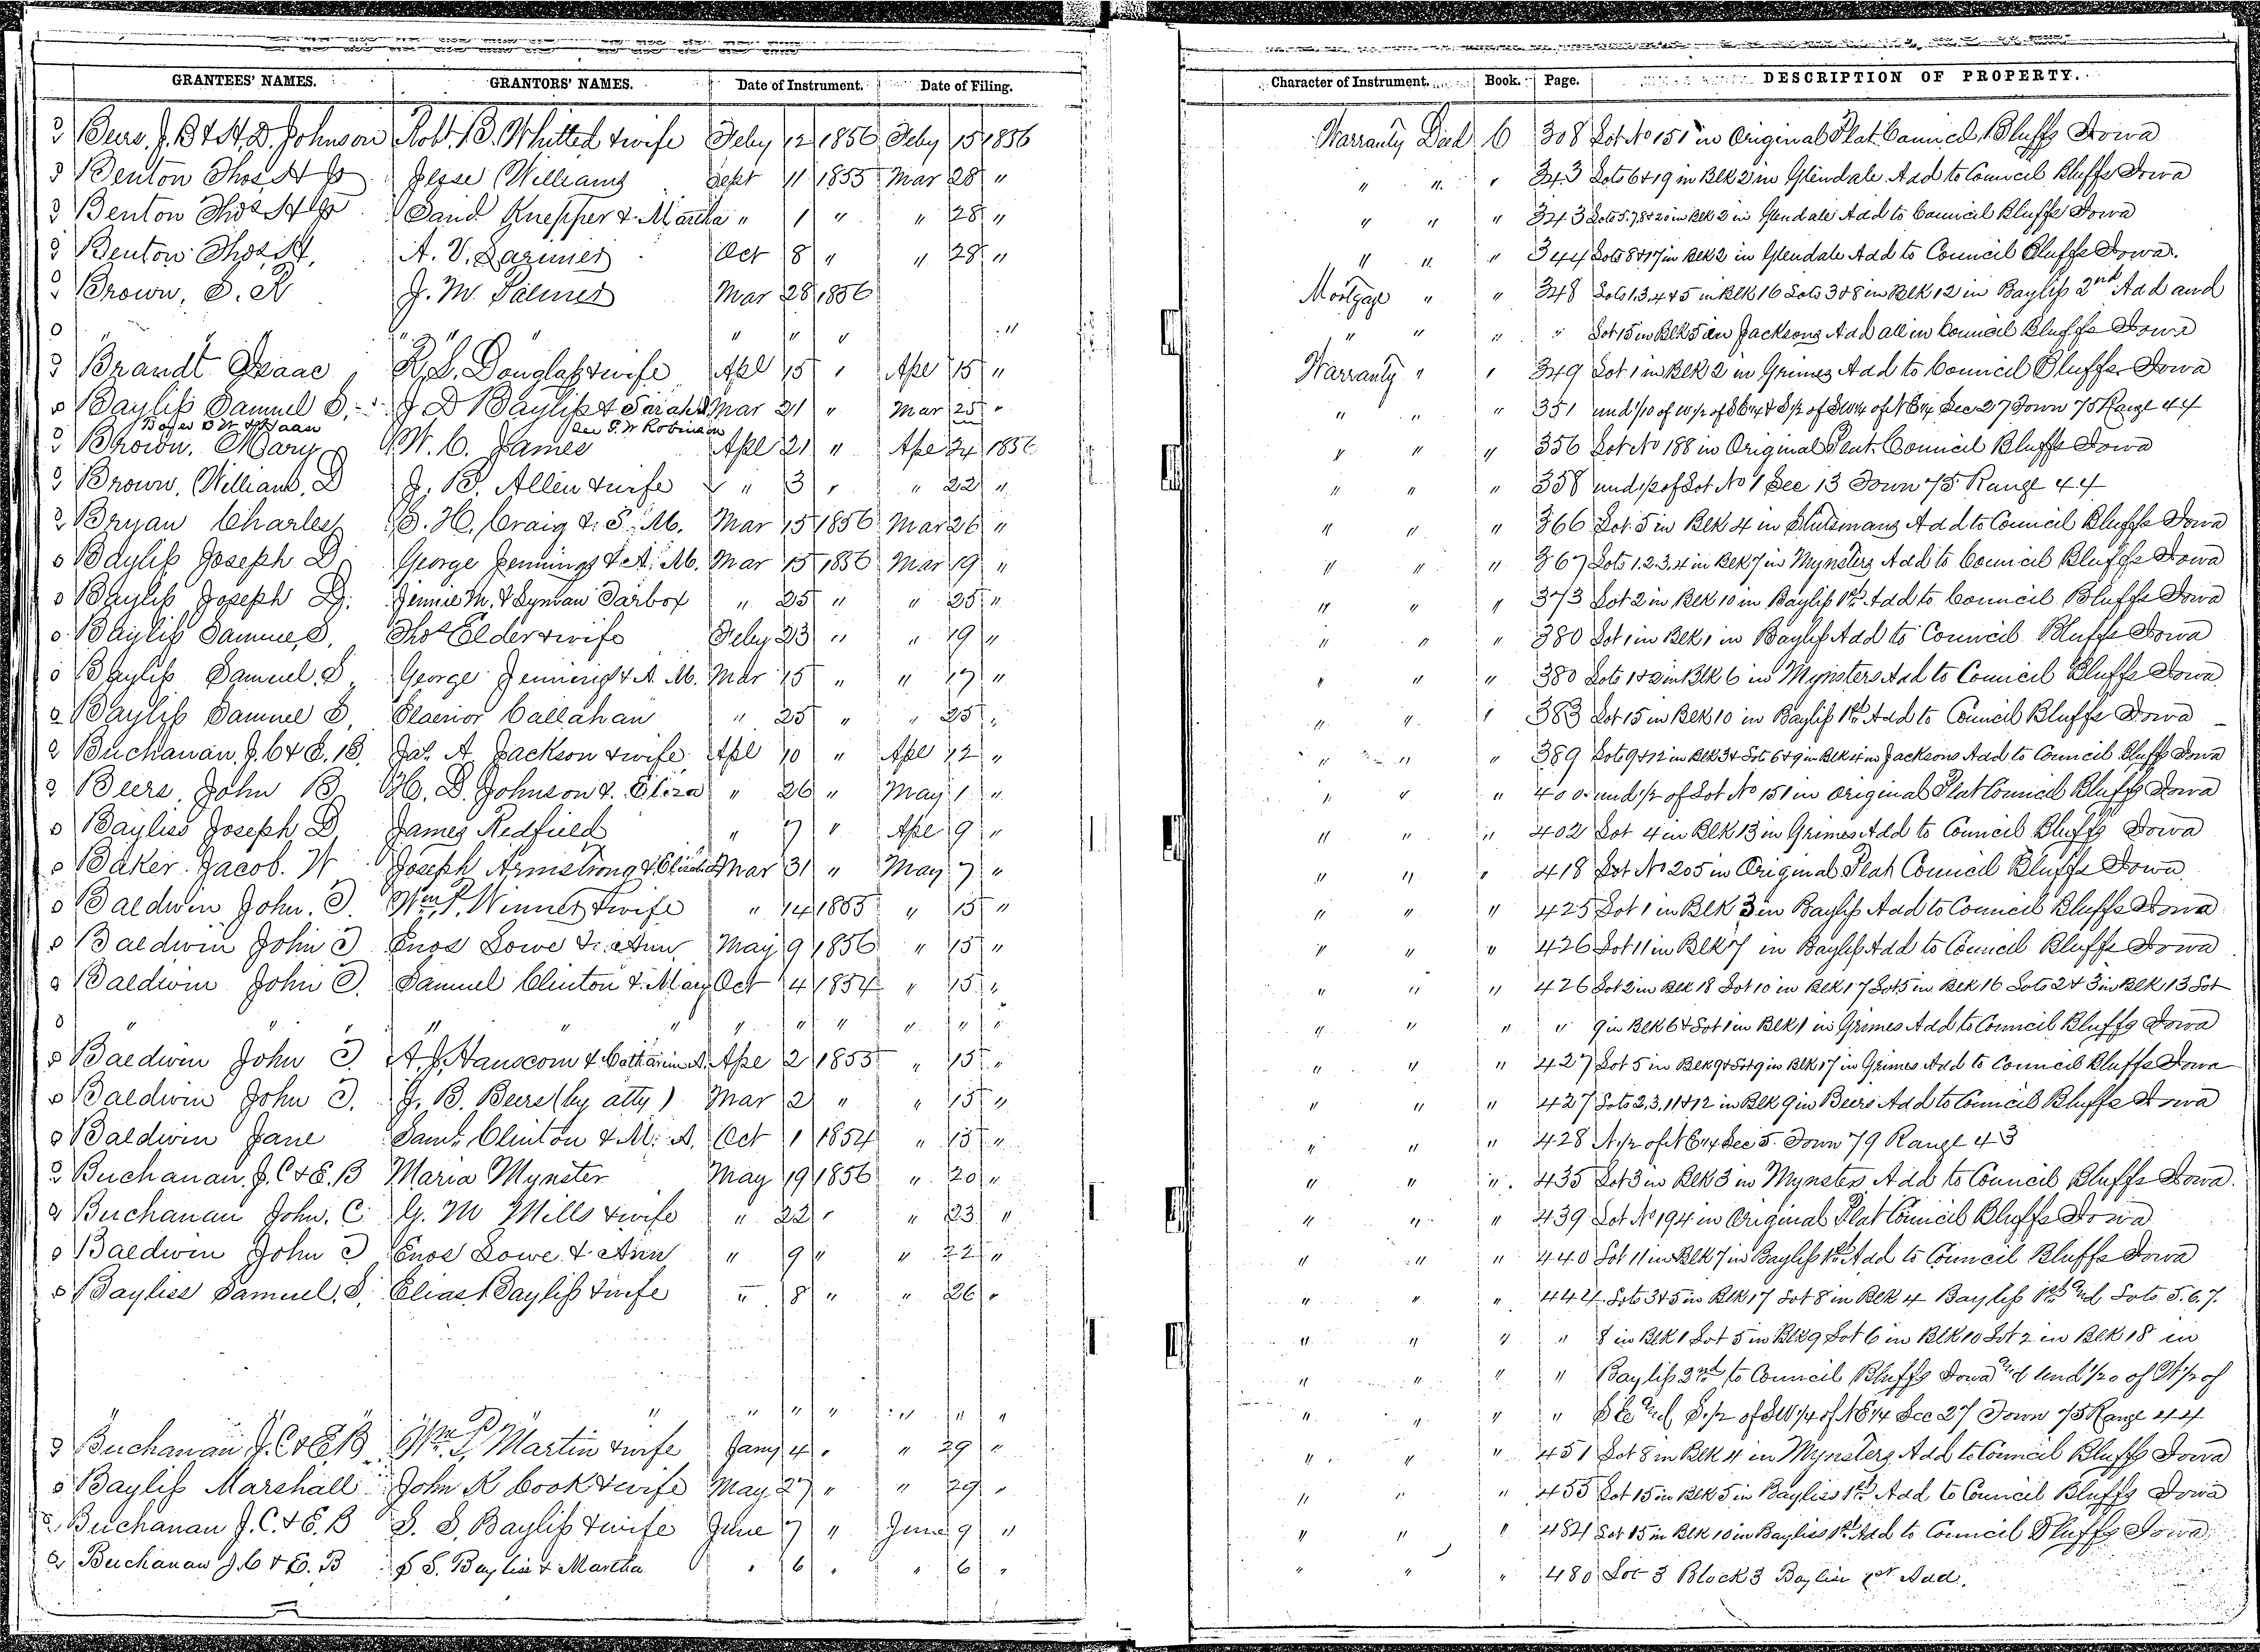 GRANTEES' NAMES. GRANTORS' NAMES. Date of Instrument. Date of Filing. Character of Instrument. Book. Page. DESCRIPTION OF PROPERTY.
Beers, J. B & H. D. Johnson Robt. B. Whitted & wife Feby 12 1856 Feby 15 1856 Warranty Deed 6 308 Lot No 151 in Original Plat Council Bluffs Iowa
Benton Thos H Jr Jesse Williams Sept 11 1855 Mar 28 " " " " 343 Lots 6 & 19 in Blk 2 in Glendale Add to Council Bluffs Iowa
Benton Thos H Jr David Knepper & Martha " 1 " " 28 " " " " 343 Lots 5. 7. 8 & 20 in Blk 2 in Glendale Add to Council Bluffs Iowa
Benton Thos H, A. V. Larimer Oct 8 " " 28 " " " " 344 Lots 8 & 17 in Blk 2 in Glendale Add to Council Bluffs Iowa.
Brown, S. R J. M. Palmer Mar 28 1856 Mortgage " " 348 Lots 1. 3. 4 & 5 in Blk 16 Lots 3 & 8 in Blk 12 in Bayliss 2nd Add and
" " " " " " " " " " " Lot 15 in Blk 5 in Jacksons Add all in Council Bluffs Iowa
Brandt Isaac R. L. Douglass & wife Apl 15 " Apl 15 " Warranty " " 349 Lot 1 in Blk 2 in Grimes Add to Council Bluffs Iowa
Bayliss Samuel S. J D Bayliss & Sarah Mar 21 " Mar 25 " " " " 351 und 1/10 of W 1/2 of SE 1/4 & S 1/2 of SW 1/4 of NE 1/4 Sec 27 Town 75 Range 44
Brown. Mary W. C. James Apl 21 " Apl 24 1856 " " " 356 Lot No 188 in Original Plat Council Bluffs Iowa
Brown, William, D J. B. Allen & wife " 3 " " 22 " " " " 358 und 1/2 of Lot No 1 Sec 13 Town 75 Range 44
Bryan Charles B. H. Craig & S. M. Mar 15 1856 Mar 26 " " " " 366 Lot 5 in Blk 4 in Stutsmans Add to Council Bluffs Iowa
Bayliss Joseph D. George Jennings & A. M. Mar 15 1856 Mar 19 " " " " 367 Lots 1. 2. 3. 4 in Blk 7 in Mynsters Add to Council Bluffs Iowa
Bayliss Joseph D. Jennie M. & Lyman Tarbox " 25 " " 25 " " " " 373 Lot 2 in Blk 10 in Bayliss 1st Add to Council Bluffs Iowa
Bayliss Samuel S, Thos Elder & wife Feby 23 " " 19 " " " " 380 Lot 1 in Blk 1 in Bayliss Add to Council Bluffs Iowa
Bayliss Samuel. S, George Jennings & A. M. Mar 15 " " 17 " " " " 380 Lots 1 & 2 in Blk 6 in Mynsters Add to Council Bluffs Iowa
Bayliss Samuel S, Elaenor Callahan " 25 " " 25 " " " " 383 Lot 15 in Blk 10 in Bayliss 1st Add to Council Bluffs Iowa
Buchanan, J. C & E. B. Jas. A. Jackson & wife Apl 10 " Apl 12 " " " " 389 Lots 9 & 12 in Blk 3 & Lots 6 & 9 in Blk 4 in Jacksons Add to Council Bluffs Iowa
Beers, John B H. D. Johnson & Eliza " 26 " May 1 " " " " 400 und 1/2 of Lot No 151 in Original Plat Council Bluffs Iowa
Bayliss Joseph D, James Redfield " 7 " Apl 9 " " " " 402 Lot 4 in Blk 13 in Grimes Add to Council Bluffs Iowa
Baker Jacob. W Joseph Armstrong & Mar 31 " May 7 " " " " 418 Lot No 205 in Original Plat Council Bluffs Iowa
Baldwin John. T. Wm P. Winner & wife " 14 1855 " 15 " " " " 425 Lot 1 in Blk 3 in Bayliss Add to Council Bluffs Iowa
Baldwin John T Enos Lowe & Ann May 9 1856 " 15 " " " " 426 Lot 11 in Blk 7 in Bayliss Add to Council Bluffs Iowa
Baldwin John T. Samuel Clinton & Mary Oct 4 1854 " 15 " " " " 426 Lot 2 in Blk 18 Lot 10 in Blk 17 Lot 5 in Blk 16 Lots 2 & 3 in Blk 13 Lot
" " " " " " " " " " " " " " " " " 9 in Blk 6 & Lot 1 in Blk 1 in Grimes Add to Council Bluffs Iowa
Baldwin John T. A. J. Hanscom & Catharine A. Apl 2 1855 " 15 " " " " 427 Lot 5 in Blk 9 & Lot 9 in Blk 17 in Grimes Add to Council Bluffs Iowa
Baldwin John T. J. B. Beers (by atty) Mar 2 " " 15 " " " " 427 Lots 2, 3, 11 & 12 in Blk 9 in Beers Add to Council Bluffs Iowa
Baldwin Jane Saml. Clinton & M. A. Oct 1 1854 " 15 " " " " 428 N 1/2 of NE 1/4 Sec 5. Town 79 Range 43
Buchanan, J. C & E. B Maria Mynster May 19 1856 " 20 " " " " 435 Lot 3 in Blk 3 in Mynsters Add to Council Bluffs Iowa.
Buchanan John. C G. M Mills & wife " 22 " " 23 " " " " 439 Lot No 194 in Original Plat Council Bluffs Iowa
Baldwin John T Enos Lowe & Ann " 9 " " 22 " " " " 440 Lot 11 in Blk 7 in Bayliss 1st Add to Council Bluffs Iowa
Bayliss Samuel. S, Elias Bayliss & wife " 8 " " 26 " " " " 444 Lots 3 & 5 in Blk 17 Lot 8 in Blk 4 Bayliss 1st Lots 5. 6. 7.
" " " " 8 in Blk 1 Lot 5 in Blk 9 Lot 6 in Blk 10 Lot 2 in Blk 18 in
" " " " Bayliss 2nd to Council Bluffs Iowa und 1/20 of W 1/2 of
" " " " " " " " " " " " S 1/2 of SW 1/4 of NE 1/4 Sec 27 Town 75 Range 44
Buchanan J. C & E B Wm. P. Martin & wife Jany 4 " " 29 " " " " 451 Lot 8 in Blk 4 in Mynsters Add to Council Bluffs Iowa
Bayliss Marshall John R Cook & wife May 27 " " 29 " " " " 455 Lot 15 in Blk 5 in Bayliss 1st Add to Council Bluffs Iowa
Buchanan J. C. & E. B S. S. Bayliss & wife June 7 " June 9 " " " " 484 Lot 15 in Blk 10 in Bayliss 1st Add to Council Bluffs Iowa
Buchanan J. C & E. B S S. Bayliss & Martha " 6 " " 6 " " " " 480 Lot 3 Block 3 Bayliss 1st Add.